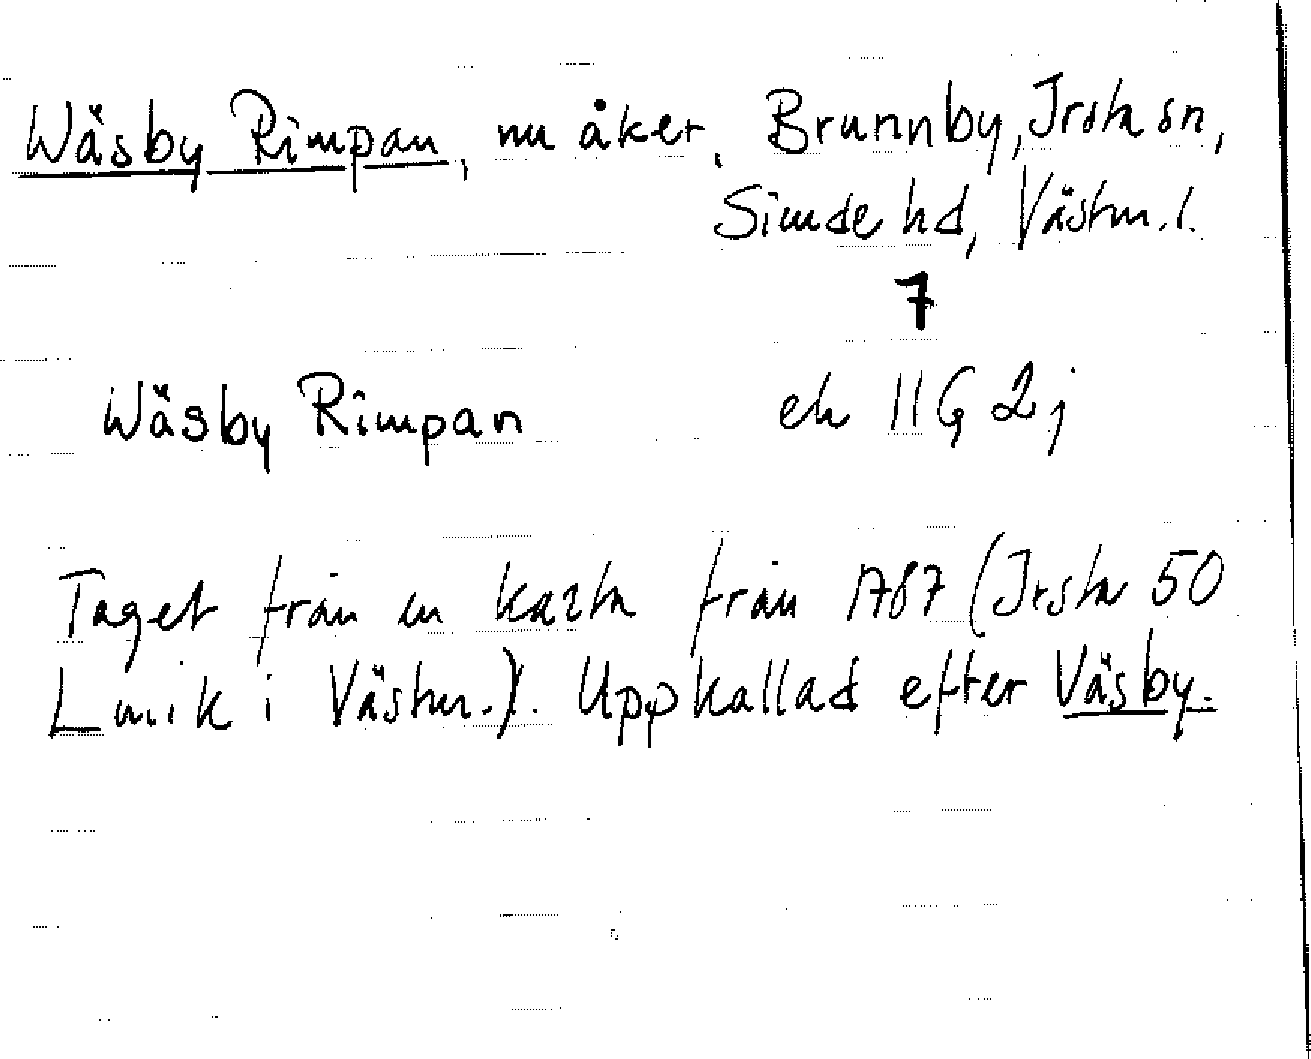 Wäsby Rimpan, nu åker, Brunnby, Irsta sn,
Siende hd, Västm. l.
7
Wäsby Rimpan ek 11G 2j
Taget från en karta från 1787 (Irsta 50
Lmik i Västm.). Uppkallad efter Väsby.